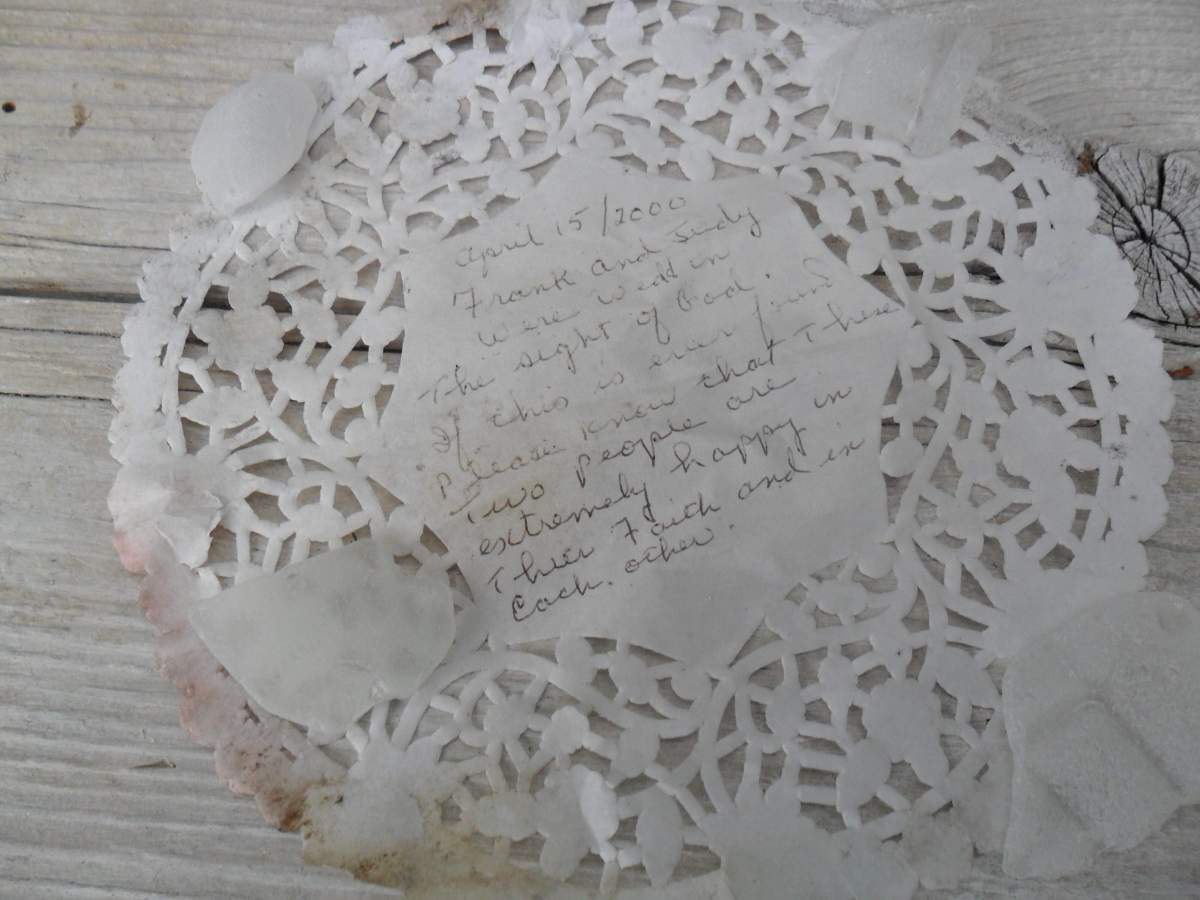 April 15/2000
Frank and Judy
were wed in
The sight of God.
If this is ever found
Please know that These
Two people are
extremely happy in
Thier Faith and in
Each other.